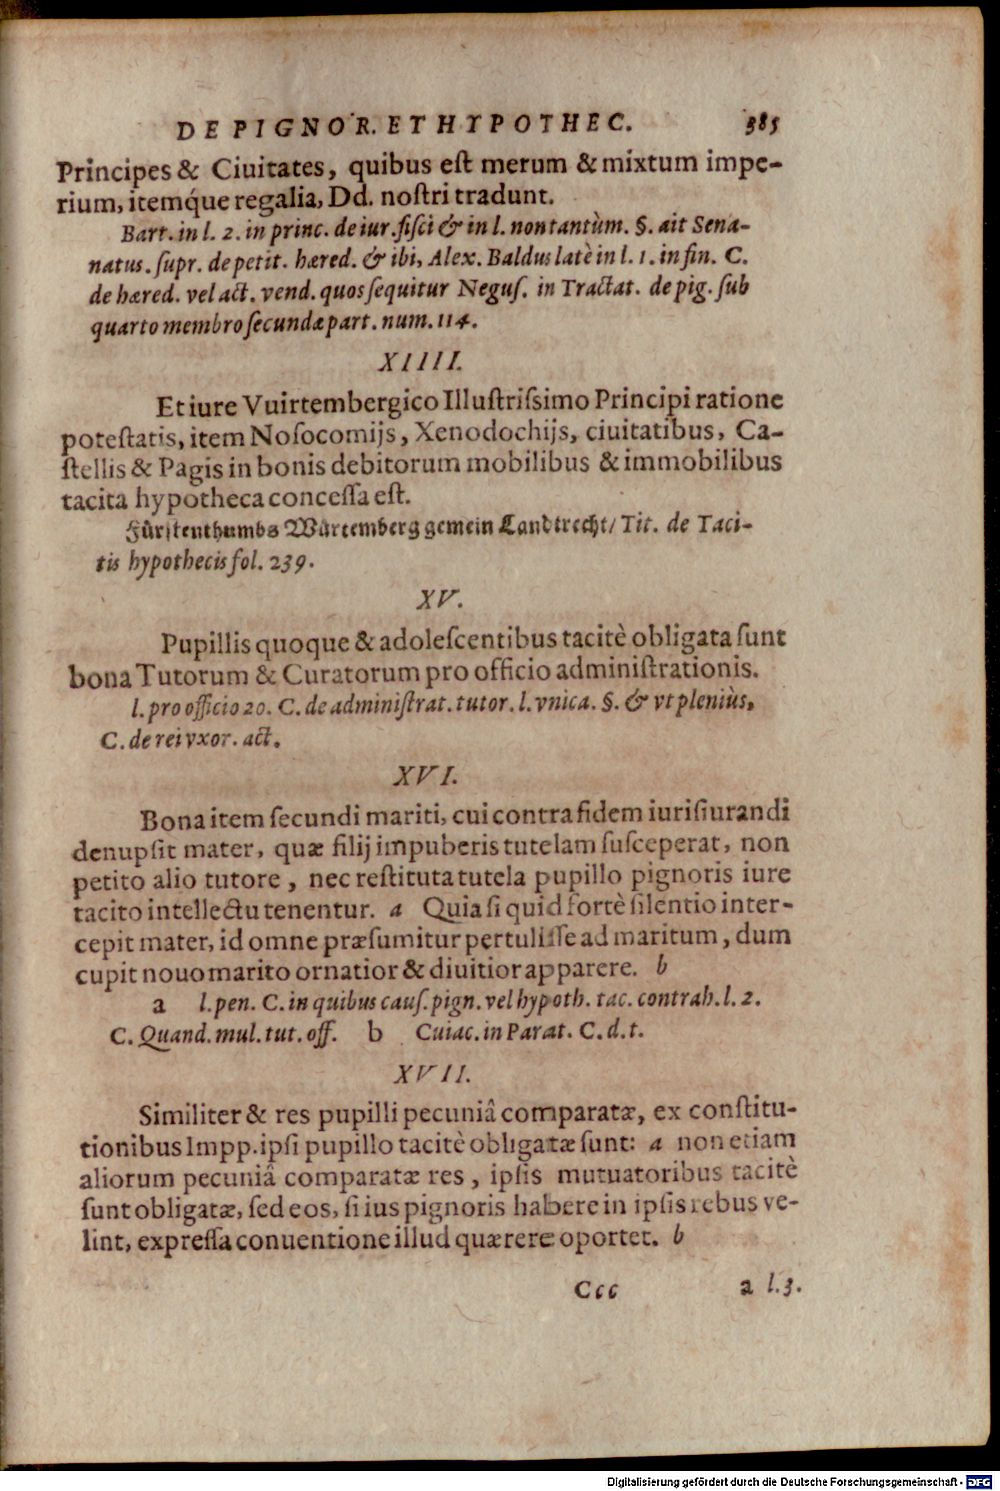 DE PIGNOR. ET HYPOTHEC. 385
Principes & Ciuitates, quibus eſt merum & mixtum impe-
rium, itemq́ue regalia, Dd. noſtri tradunt.
Bart. in l. 2. in princ. de iur. fiſci & in l. non tantùm. §. ait Sena-
natus. ſupr. de petit. hæred. & ibi, Alex. Baldus latè in l. 1. in fin. C.
de hæred. vel act. vend. quos ſequitur Neguſ. in Tractat. de pig. ſub
quarto membro ſecundæ part. num. 114.
XIIII.
Et iure Vuirtembergico Illuſtriſsimo Principi ratione
poteſtatis, item Noſocomijs, Xenodochijs, ciuitatibus, Ca-
ſtellis & Pagis in bonis debitorum mobilibus & immobilibus
tacita hypotheca conceſſa eſt.
Fürſtenthumbs Würtemberg gemein Landtrecht/ Tit. de Taci-
tis hypothecis fol. 239.
XV.
Pupillis quoque & adoleſcentibus tacitè obligata ſunt
bona Tutorum & Curatorum pro officio adminiſtrationis.
l. pro officio 20. C. de adminiſtrat. tutor. l. vnica. §. & vt pleniùs,
C. de rei vxor. act.
XVI.
Bona item ſecundi mariti, cui contra fidem iuriſiurandi
denupſit mater, quæ filij impuberis tutelam ſuſceperat, non
petito alio tutore, nec reſtituta tutela pupillo pignoris iure
tacito intellectu tenentur. a Quia ſi quid fortè ſilentio inter-
cepit mater, id omne præſumitur pertuliſſe ad maritum, dum
cupit nouo marito ornatior & diuitior apparere. b
a l. pen. C. in quibus cauſ. pign. vel hypoth. tac. contrah. l. 2.
C. Quand. mul. tut. off. b Cuiac. in Parat. C. d. t.
XVII.
Similiter & res pupilli pecuniâ comparatæ, ex conſtitu-
tionibus Impp. ipſi pupillo tacitè obligatæ ſunt: a non etiam
aliorum pecuniâ comparatæ res, ipſis mutuatoribus tacitè
ſunt obligatæ, ſed eos, ſi ius pignoris habere in ipſis rebus ve-
lint, expreſſa conuentione illud quærere oportet. b
Ccc a l. 3.
Digitalisierung gefördert durch die Deutsche Forschungsgemeinschaft - DFG